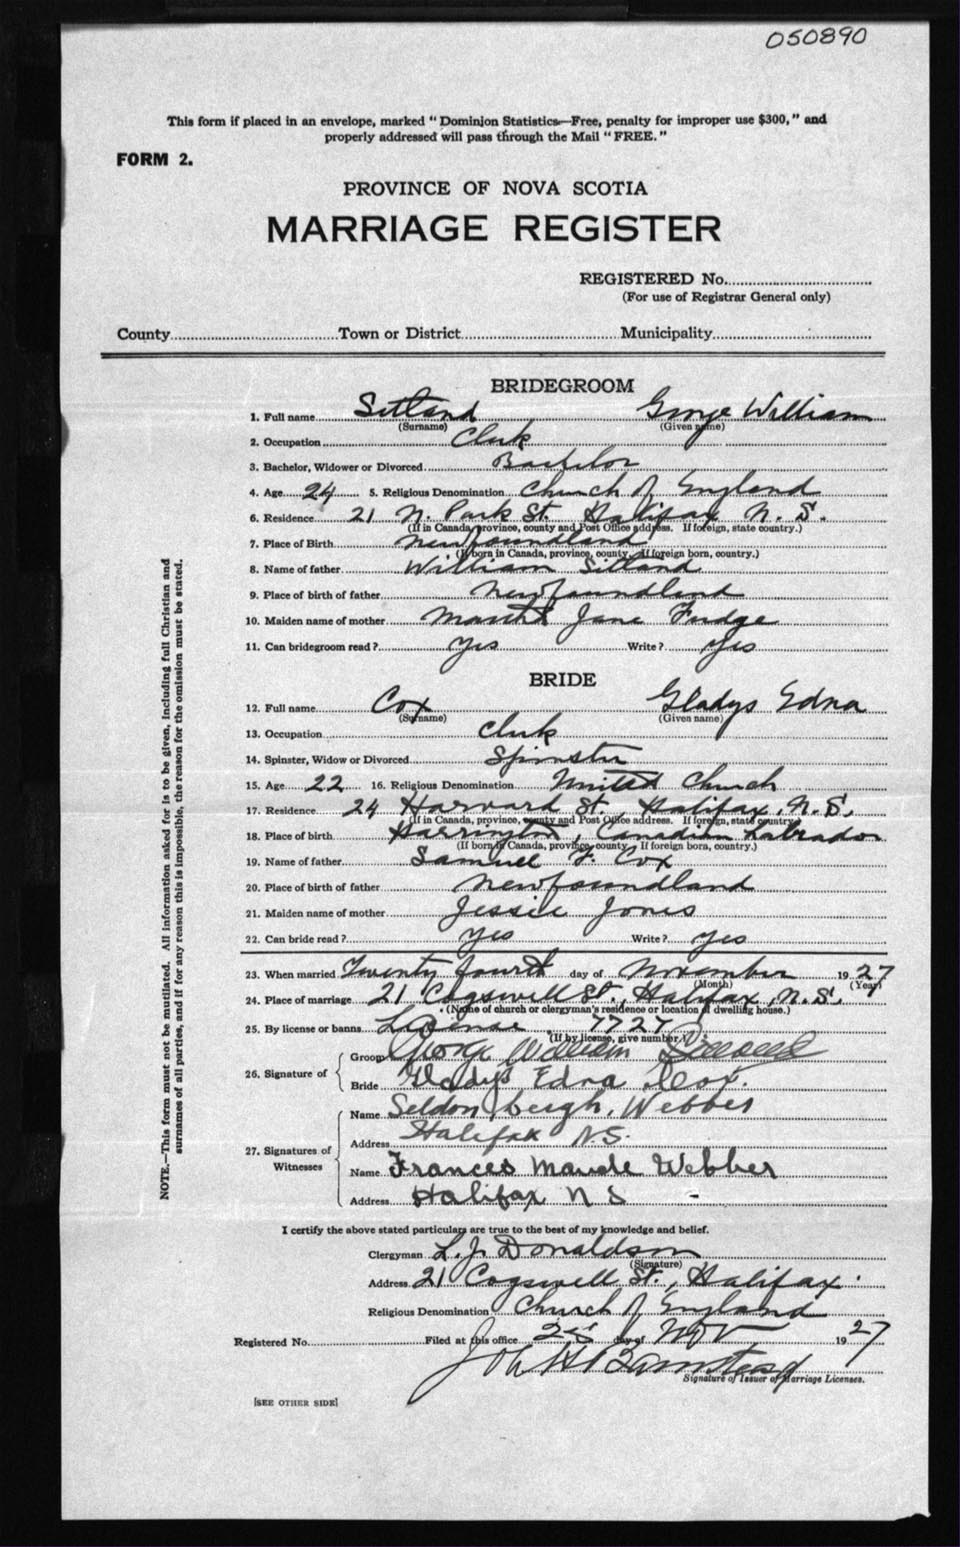 050890
This form if placed in an envelope, marked "Dominion Statistics—Free, penalty for improper use $300," and
properly addressed will pass through the Mail "FREE."
FORM 2.
PROVINCE OF NOVA SCOTIA
MARRIAGE REGISTER
REGISTERED No.
(For use of Registrar General only)
County Town or District Municipality
BRIDEGROOM
1. Full name Sitland George William
(Surname) (Given name)
2. Occupation Clerk
3. Bachelor, Widower or Divorced Bachelor
4. Age 24 5. Religious Denomination Church of England
6. Residence 21 N. Park St. Halifax N. S.
(If in Canada, province, county and Post Office address. If foreign, state country.)
7. Place of Birth Newfoundland
(If born in Canada, province, county. If foreign born, country.)
8. Name of father William Sitland
9. Place of birth of father Newfoundland
10. Maiden name of mother Jane Fudge
11. Can bridegroom read? Yes Write? Yes
BRIDE
12. Full name Cox Gladys Edna
(Surname) (Given name)
13. Occupation Clerk
14. Spinster, Widow or Divorced Spinster
15. Age 22 16. Religious Denomination United Church
17. Residence 24 Harvard St., Halifax, N. S.
(If in Canada, province, county and Post Office address. If foreign, state country.)
18. Place of birth Harrington, Canadian Labrador
(If born in Canada, province, county. If foreign born, country.)
19. Name of father Samuel F. Cox
20. Place of birth of father Newfoundland
21. Maiden name of mother Jessie Jones
22. Can bride read? Yes Write? Yes
23. When married Twenty fourth day of November 1927
(Month) (Year)
24. Place of marriage 21 Cogswell St., Halifax, N.S.
(Name of church or clergyman's residence or location of dwelling house.)
25. By license or banns License 7727
(If by license, give number.)
26. Signature of Groom George William
Bride Gladys Edna Cox.
27. Signatures of Witnesses
Name Seldon Webber
Address Halifax N.S.
Name Frances Maude Webber
Address Halifax N S
I certify the above stated particulars are true to the best of my knowledge and belief.
Clergyman L. J. Donaldson
(Signature)
Address 21 Cogswell St., Halifax.
Religious Denomination Church of England
Registered No. Filed at this office 25 day of Nov 1927
Signature of Issuer of Marriage Licenses.
[SEE OTHER SIDE]
NOTE.—This form must not be mutilated. All information asked for is to be given, including full Christian and
surnames of all parties, and if for any reason this is impossible, the reason for the omission must be stated.